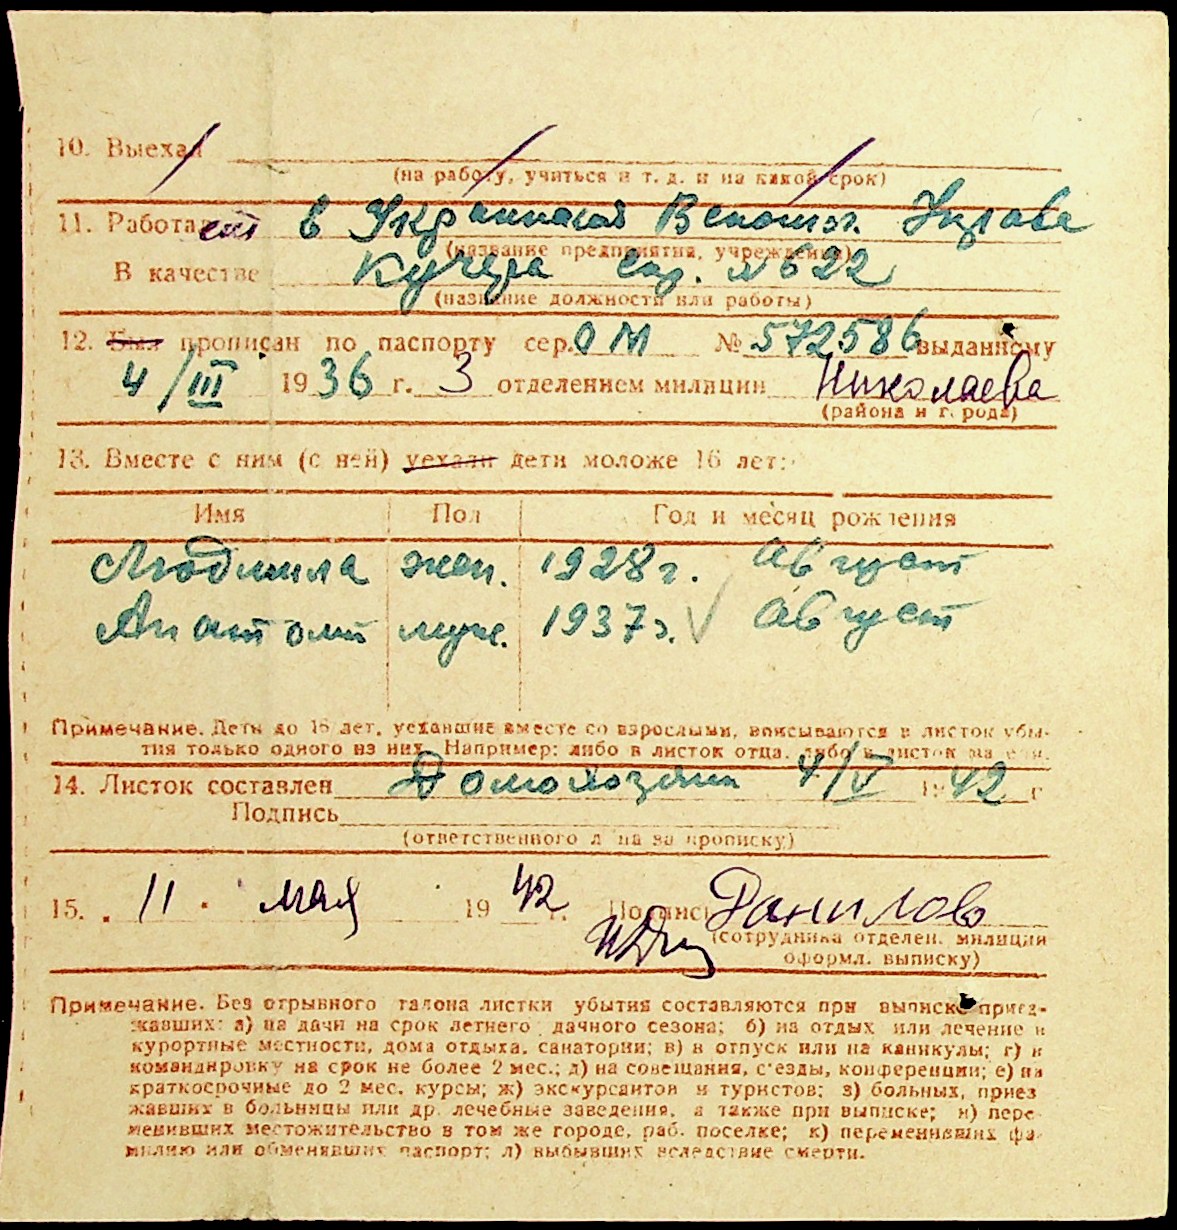 10. Выехал
(на работу, учиться и т. д. и на какой срок)
11. Работает в Украинской Вспомог. Управа
(название предприятия, учреждения)
В качестве Кучера спр. №622
(название должности или работы)
12. Был прописан по паспорту сер. ОМ № 572586 выданному
4/III 1936 г. 3 отделением милиции Николаева
(района и города)
13. Вместе с ним (с ней) уехали дети моложе 16 лет:
Имя Пол Год и месяц рождения
Людмила жен. 1928 г. август
Анатолий муж. 1937 г. август
Примечание. Дети до 16 лет, уехавшие вместе со взрослыми, вписываются в листок убы-
тия только одного из них. Например: либо в листок отца, либо в листок матери.
14. Листок составлен 4/V 1942 г
Подпись
(ответственного лица за прописку)
15. 11. мая 1942 г. Подпись Данилов
(сотрудника отделен. милиции
оформл. выписку)
Примечание. Без отрывного талона листки убытия составляются при выписке приез-
жавших: а) на дачи на срок летнего дачного сезона; б) на отдых или лечение в
курортные местности, дома отдыха, санатории; в) в отпуск или на каникулы; г) в
командировку на срок не более 2 мес.; д) на совещания, съезды, конференции; е) на
краткосрочные до 2 мес. курсы; ж) экскурсантов и туристов; з) больных, приез
жавших в больницы или др. лечебные заведения, а также при выписке; и) пере-
менивших местожительство в том же городе, раб. поселке; к) переменивших фа-
милию или обменявших паспорт; л) выбывших вследствие смерти.